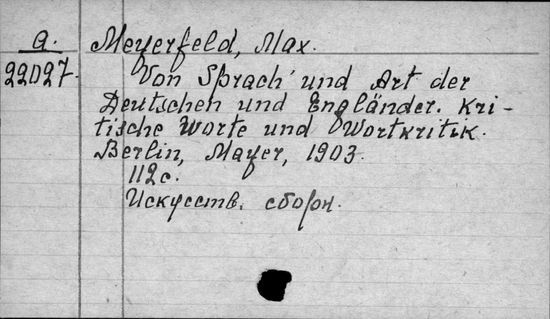 a.
22027.
Meyerfeld, Max.
Von Sprach' und Art der
Deutschen und Engländer. Kri-
tische Worte und Wortkritik.
Berlin, Mayer, 1903.
112 с.
Искусств. сборн.